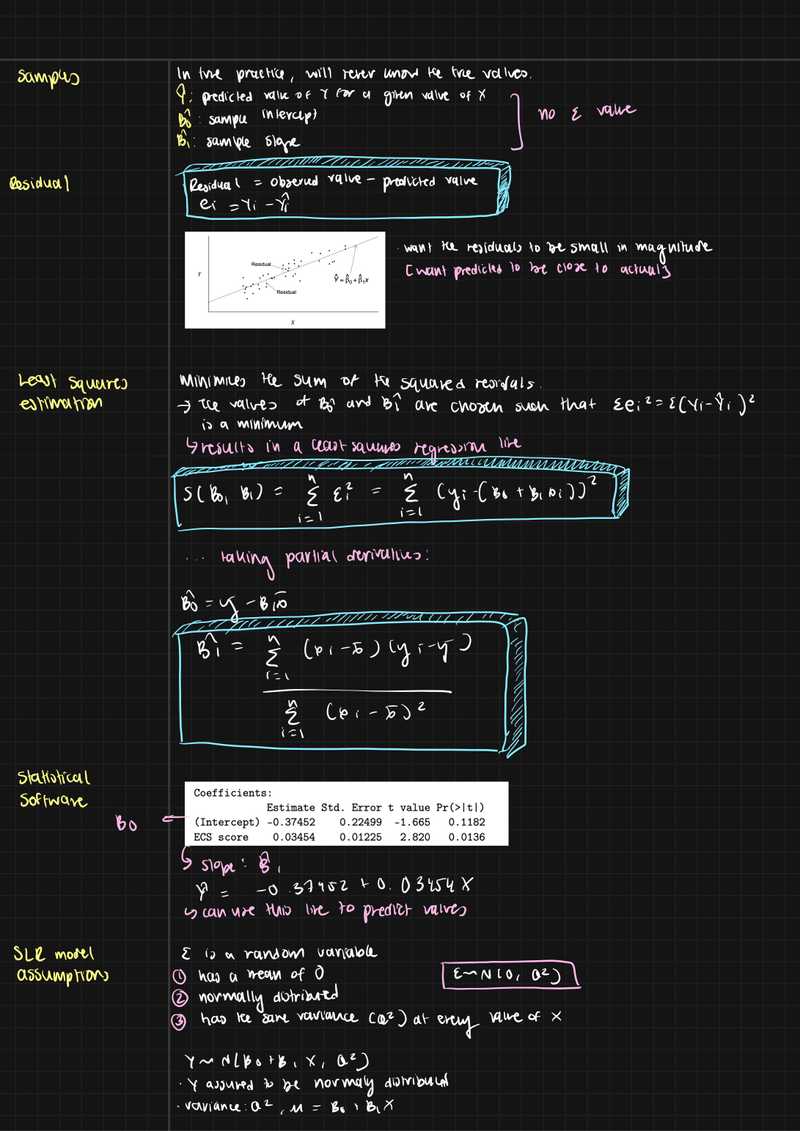 samples
In true practice, will never know the true values.
Ŷ: predicted value of Y for a given value of X
B̂0: sample intercept
B̂1: sample slope
no ε value
Residual
Residual = observed value - predicted value
ei = Yi - Ŷi
Y
Residual
Residual
Ŷ = β̂0 + β̂1x
X
· want the residuals to be small in magnitude
[want predicted to be close to actual]
Least squares
estimation
Minimizes the sum of the squared residuals.
→ The values of B̂0 and B̂1 are chosen such that Σei² = Σ(Yi - Ŷi)²
is a minimum
↳ results in a least squares regression line
S(B0, B1) = Σ(i=1 to n) εi² = Σ(i=1 to n) (yi - (B0 + B1xi))²
... taking partial derivatives:
B̂0 = ȳ - B1x̄
B̂1 = Σ(i=1 to n) (xi - x̄)(yi - ȳ)
Σ(i=1 to n) (xi - x̄)²
Statistical
software
Coefficients:
Estimate Std. Error t value Pr(>|t|)
B0 ← (Intercept) -0.37452 0.22499 -1.665 0.1182
ECS score 0.03454 0.01225 2.820 0.0136
↳ slope: B̂1
Ŷ = -0.37452 + 0.03454X
↳ can use this line to predict values
SLR model
assumptions
ε is a random variable
① has a mean of 0
ε ~ N(0, σ²)
② normally distributed
③ has the same variance (σ²) at every value of X
Y ~ N(B0 + B1X, σ²)
· Y assumed to be normally distributed
· variance: σ², μ = B0 + B1X